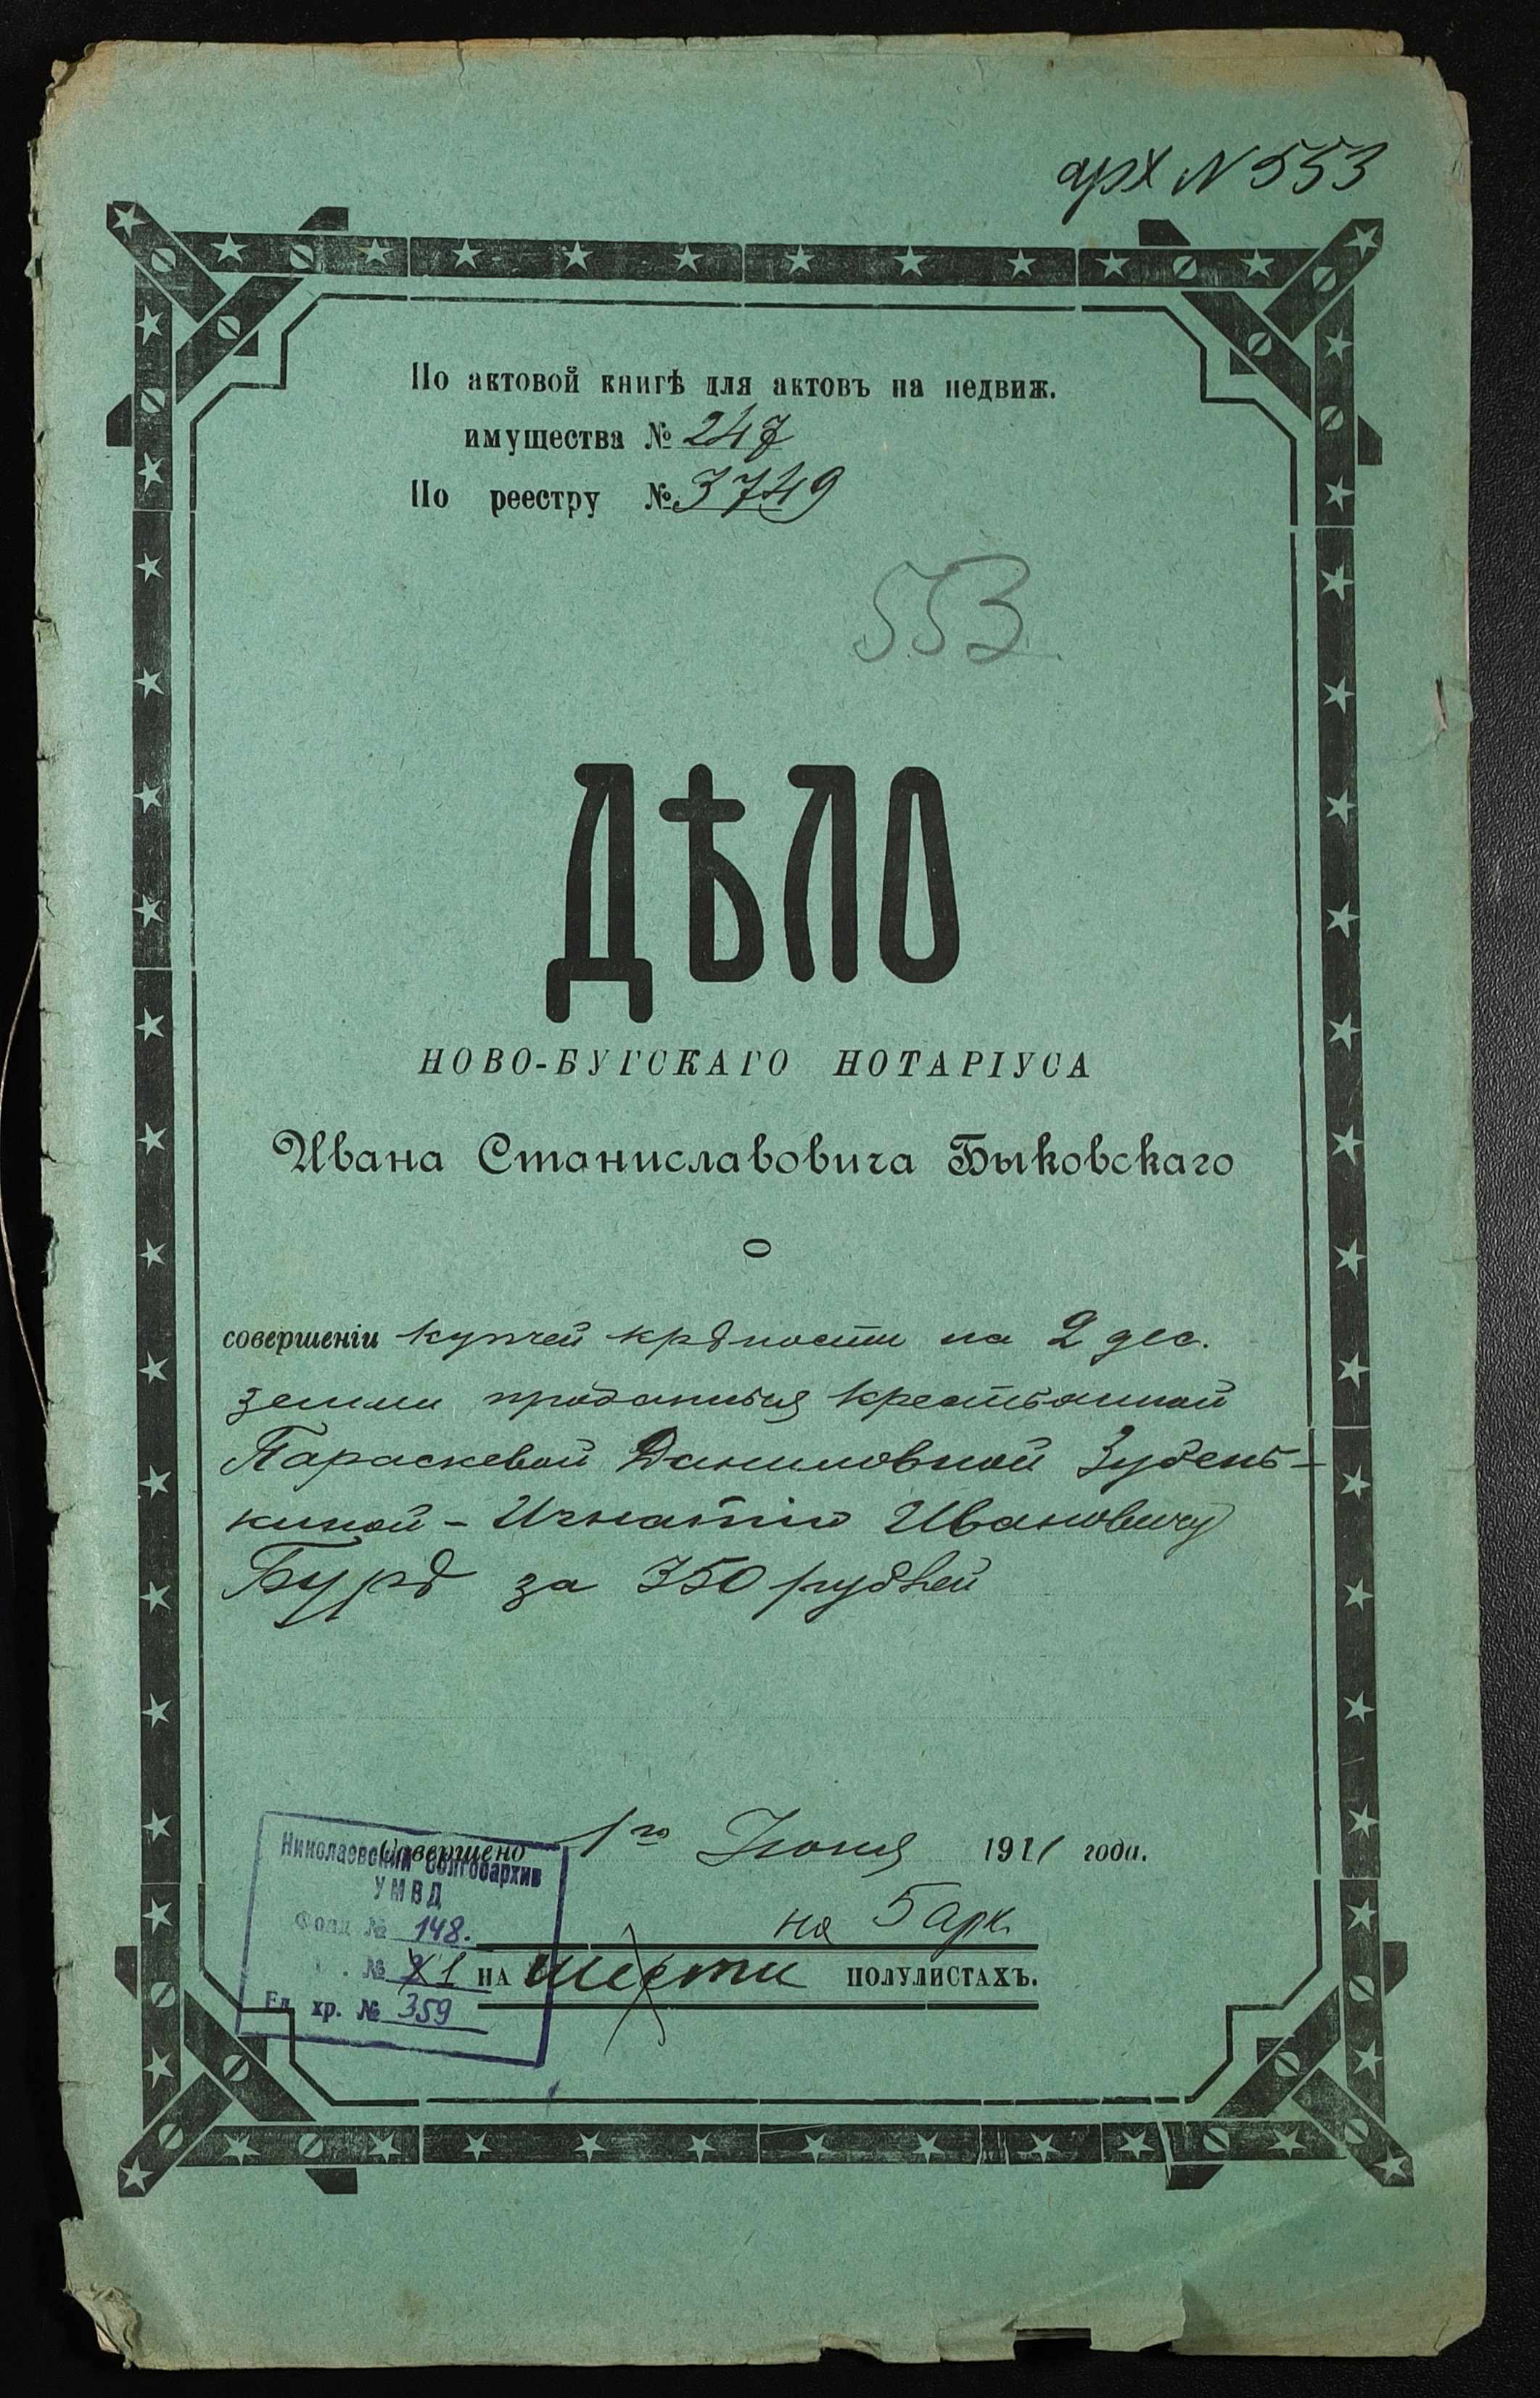 арх N 553
По актовой книгѣ для актовъ на недвиж.
имущества № 247
По реестру № 3749
553
ДѢЛО
НОВО-БУГСКАГО НОТАРІУСА
Ивана Станиславовича Быковскаго
о
совершеніи купчей крѣпости на 2 дес.
земли проданныя крестьянкой
Параскевой Даниловной Зубень-
киной - Игнатію Ивановичу
Бурѣ за 350 рублей
Совершено 1го Июня 1911 года.
на 5 арк.
НА шести ПОЛУЛИСТАХЪ.
Николаевский облгосархив
УМВД
Фонд № 148.
№ 1
Ед. хр. № 359